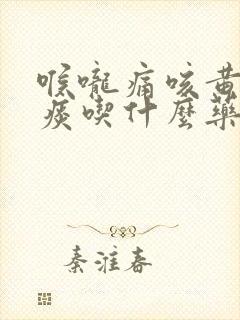 喉嚨痛咳黃
痰喫什麼藥
秦淮春